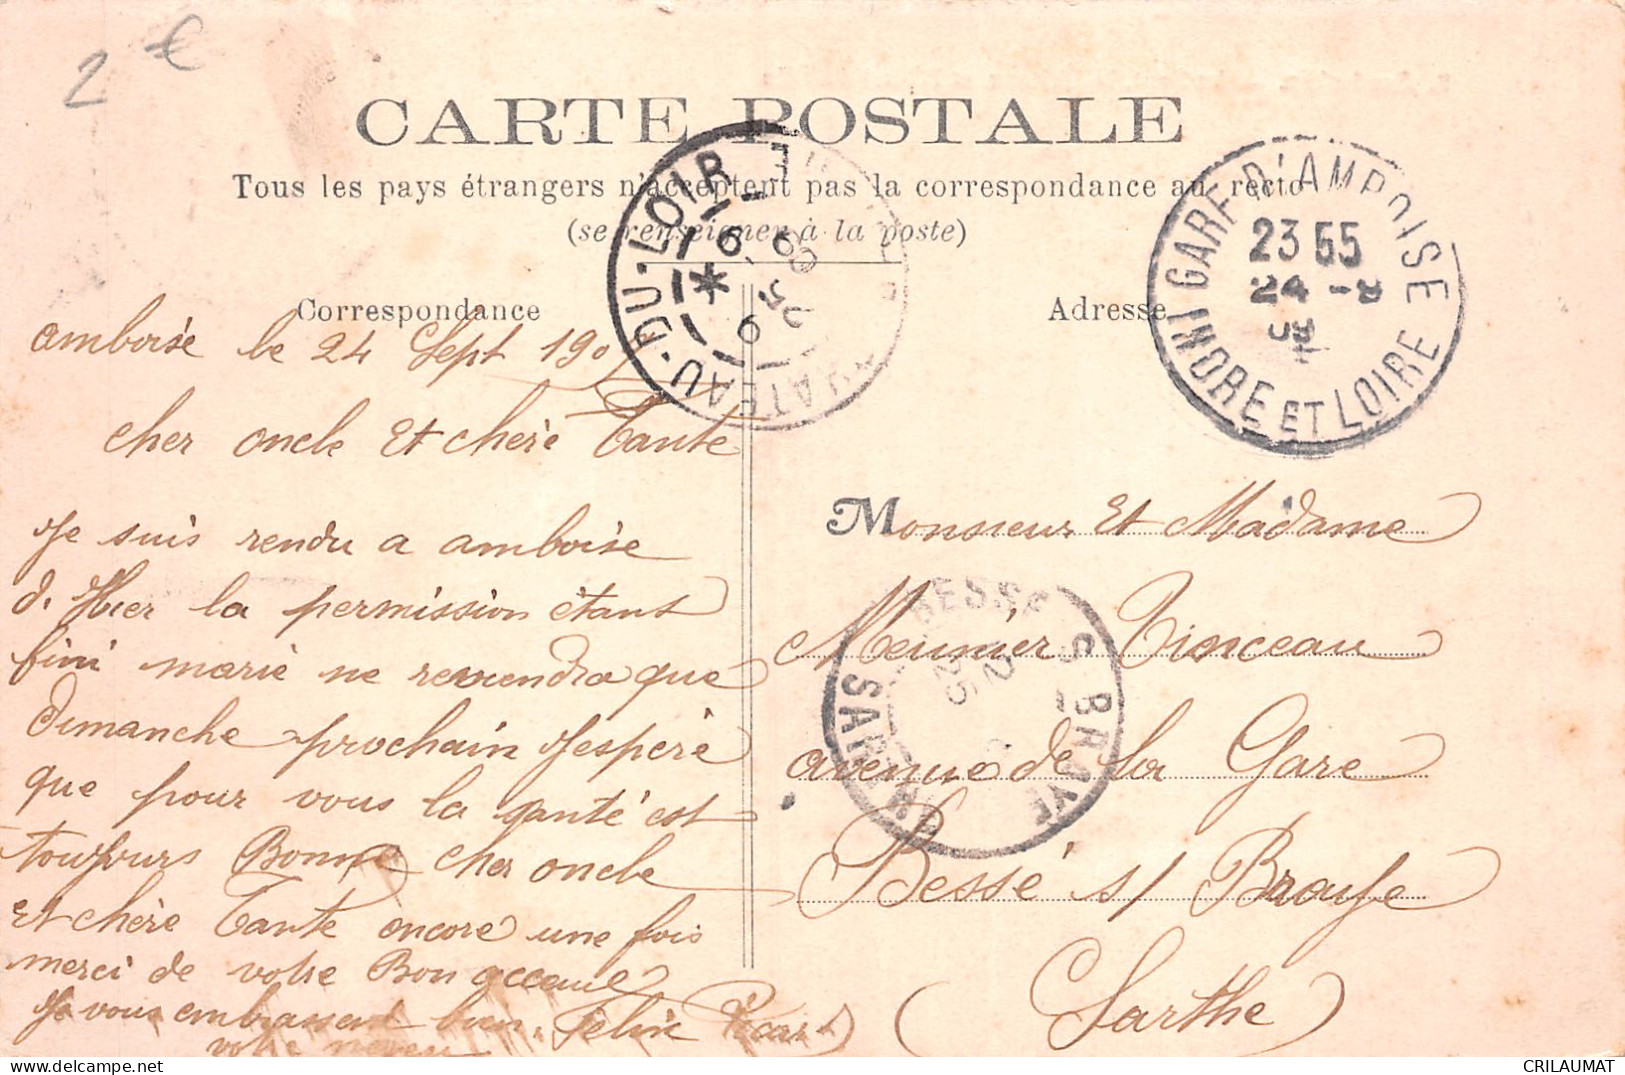 2 €
CARTE POSTALE
Tous les pays étrangers n'acceptent pas la correspondance au recto
(se renseigner à la poste)
Correspondance
Adresse
CHATEAU-DU-LOIR
6
25
9
09
GARE D'AMBOISE
23 55
24 -9
INDRE ET LOIRE
amboise le 24 Sept 190
cher oncle Et chère Tante
Je suis rendu a amboise
d. Hier la permission étant
fini marie ne reviendra que
Dimanche prochain J'espère
que pour vous la santé est
toujours Bonne cher oncle
Et chère Tante encore une fois
merci de votre Bon acceuil
Je vous embrassent bien. Felix Picart
votre neveu
Monsieur Et Madame
Meunier Tinceau
avenue de la Gare
Bessé s/ Braye
(Sarthe)
BESSE S BRAYE
25
SARTHE
CRILAUMAT